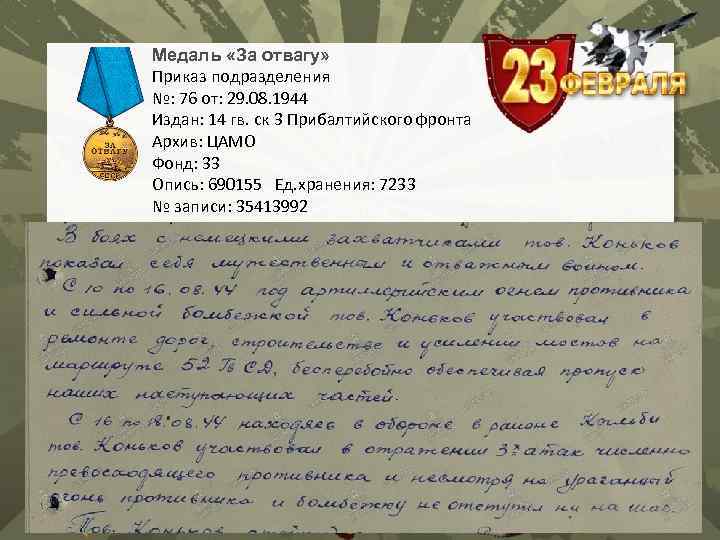 Медаль «За отвагу»
Приказ подразделения
№: 76 от: 29.08.1944
Издан: 14 гв. ск 3 Прибалтийского фронта
Архив: ЦАМО
Фонд: 33
Опись: 690155 Ед.хранения: 7233
№ записи: 35413992
ЗА
ОТВАГУ
СССР
23
ФЕВРАЛЯ
В боях с немецкими захватчиками тов. Коньков
показал себя мужественным и отважным воином.
С 10 по 16.08.44 под артиллерийским огнем противника
и сильной бомбежкой тов. Коньков участвовал в
ремонте дорог, строительстве и усилении мостов на
маршруте 52 Гв СД, бесперебойно обеспечивая пропуск
наших наступающих частей.
С 16 по 18.08.44 находясь в обороне в районе
тов. Коньков участвовал в отражении 3х атак численно
превосходящего противника и несмотря на ураганный
огонь противника и бомбежку не отступил ни на шаг.
Тов. Коньков